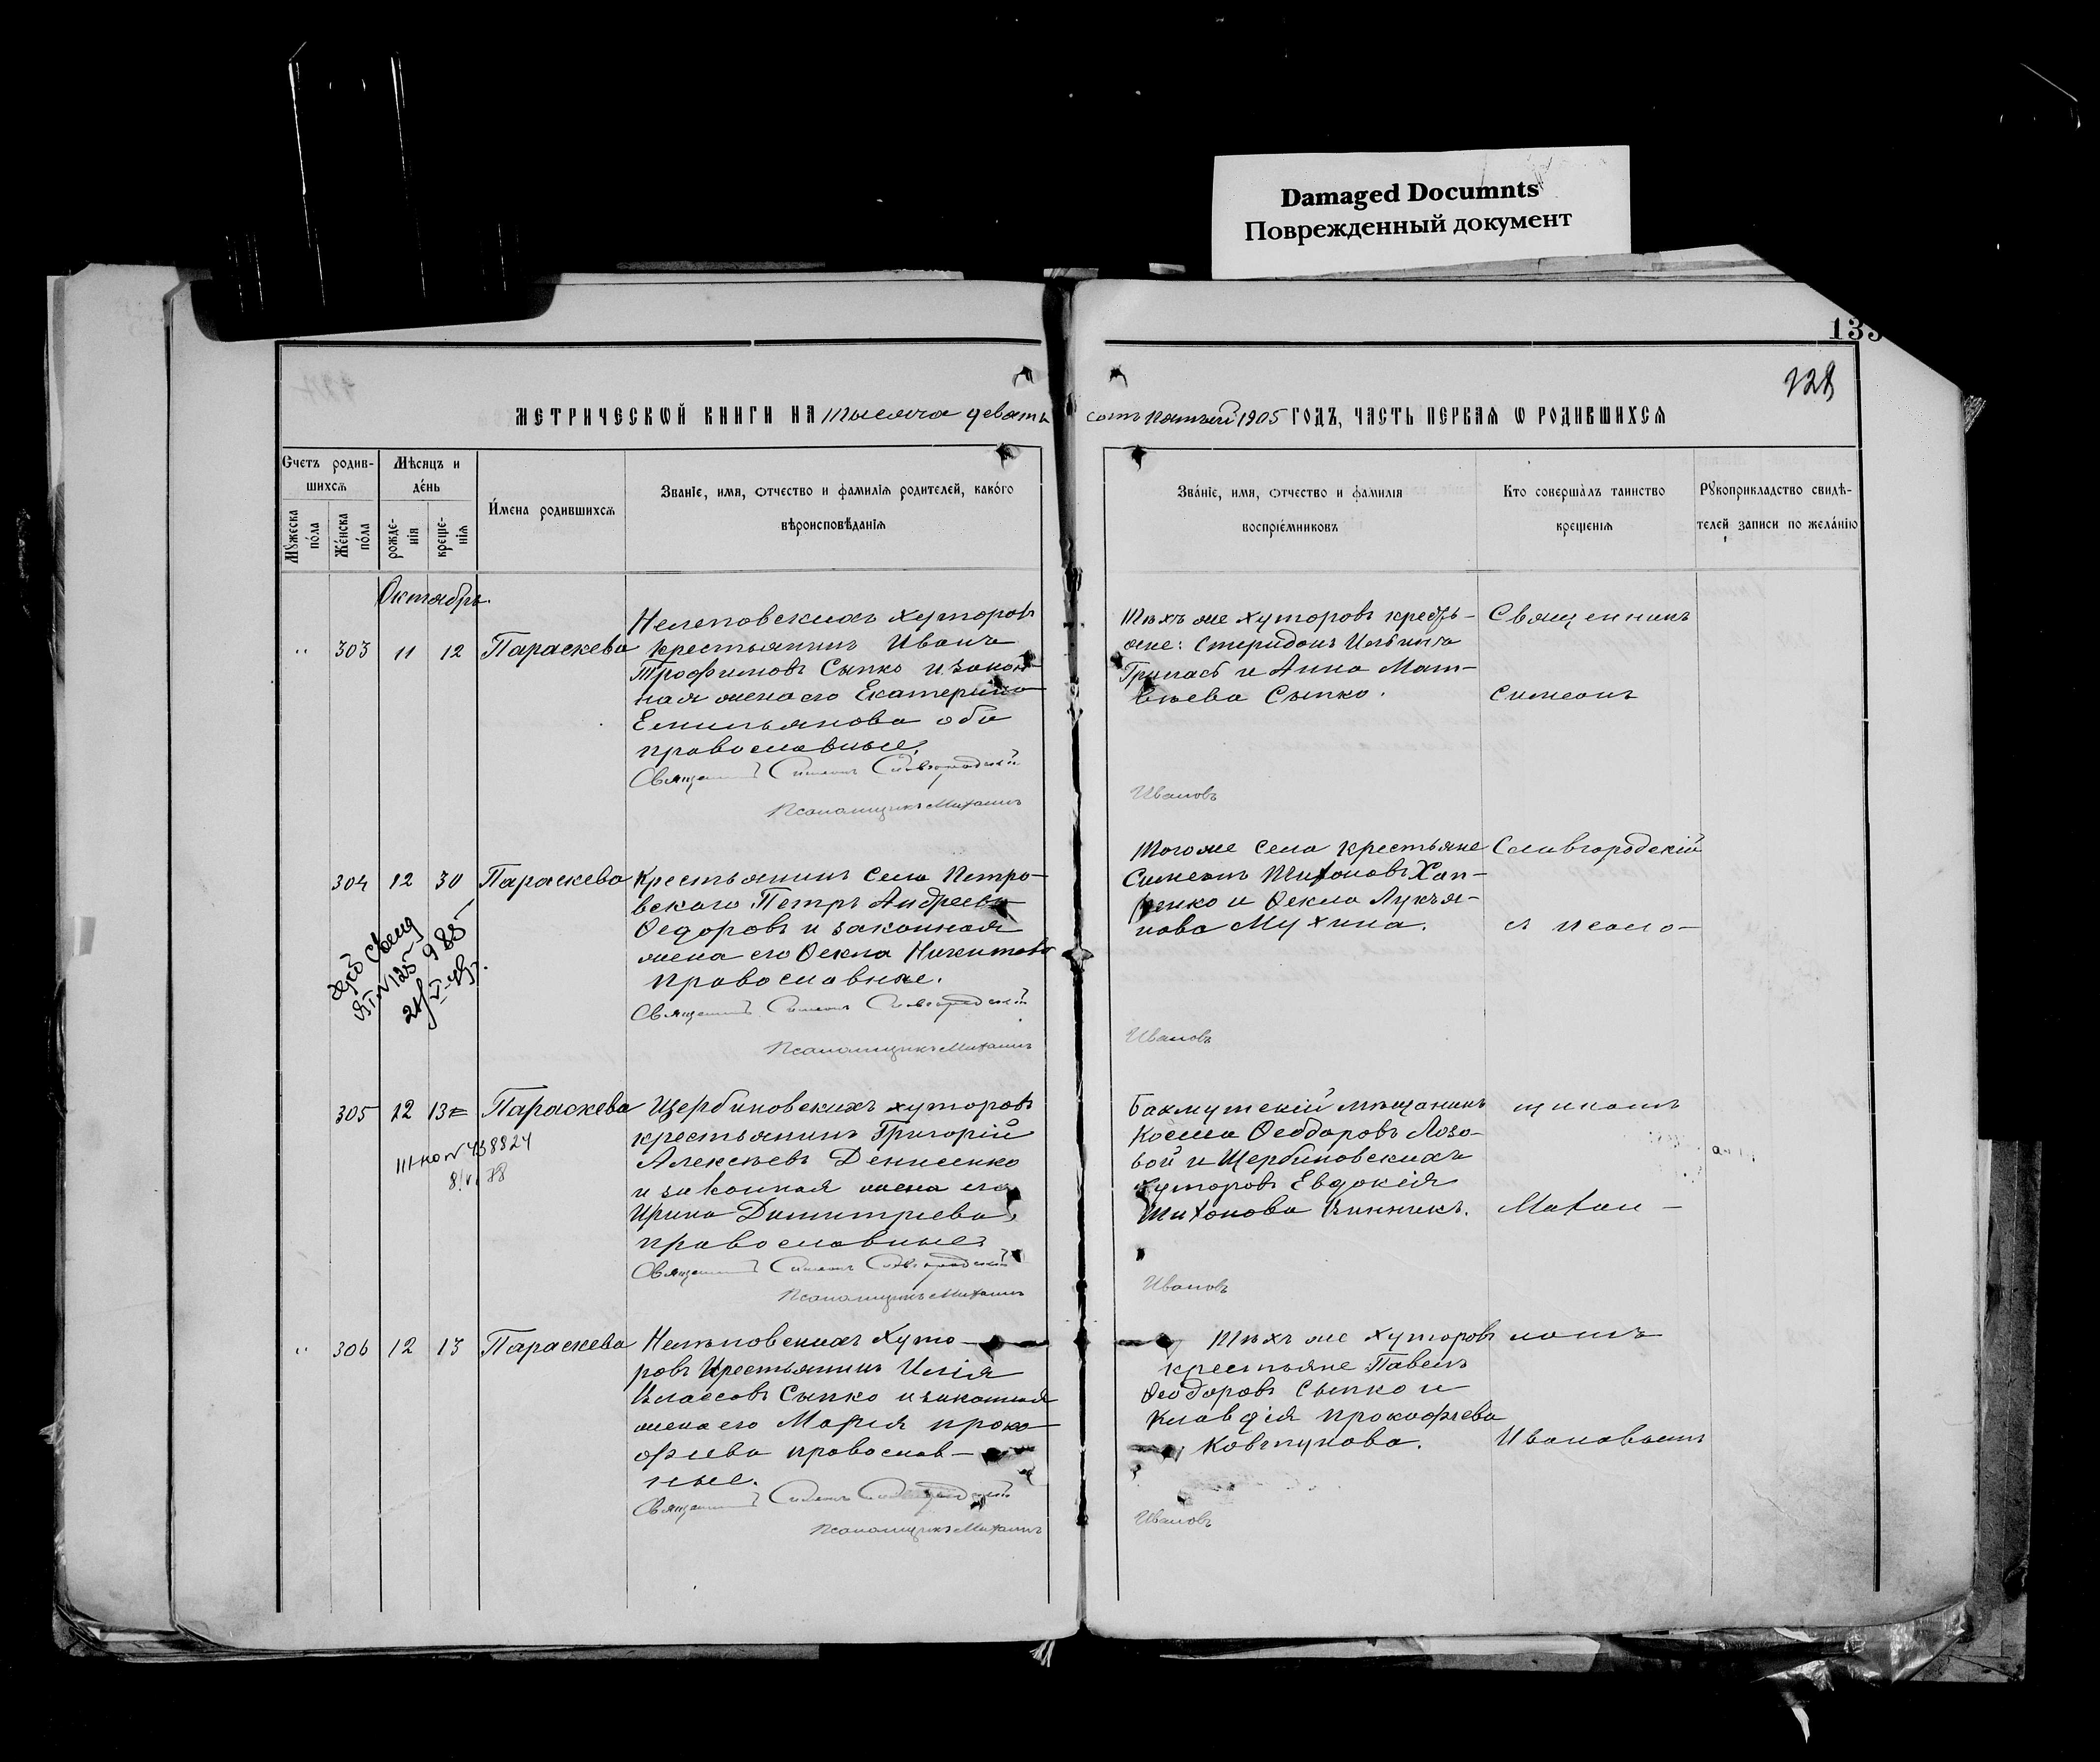 Damaged Documnts
Поврежденный документ
133
128
МЕТРИЧЕСКОЙ КНИГИ НА тысяча девять
сотъ пятый 1905 ГОДЪ, ЧАСТЬ ПЕРВАЯ Ѡ РОДИВШИХСЯ
Счетъ родив-
шихся
Мѣсяцъ и
день
Имена родившихся
Званіе, имя, отчество и фамилія родителей, какого
вѣроисповѣданія
Мужеска
пола
Женска
пола
рожде-
нія
креще-
нія
Званіе, имя, отчество и фамилія
воспріемниковъ
Кто совершалъ таинство
крещенія
Рукоприкладство свидѣ-
телей записи по желанію
Октябрь.
„ 303 11 12 Параскева
Нелеповскихъ хуторовъ
крестьянинъ Иванъ
Трофимовъ Сыпко и закон-
ная жена его Екатерина
Емильянова оба
православные.
Священникъ Симеонъ Селивгородскій
Псаломщикъ Михаилъ
Тѣхъ же хуторовъ кресть-
яне: Спиридонъ Ильинъ
и Анна Мат-
вѣева Сыпко.
Ивановъ
Священникъ
Симеонъ
304 12 30 Параскева
Крестьянинъ села Петро-
вскаго Петръ Андреевъ
Ѳедоровъ и законная
жена его Ѳекла Никитова
православные.
Священникъ Симеонъ Селивгородскій
Псаломщикъ Михаилъ
Тогоже села крестьяне
Симеонъ Тихоновъ Хап-
ренко и Ѳекла Лукъя-
нова Мухина.
Ивановъ
Селивгородскій
съ псало-
305 12 13 Параскева
III-но № 438824
8/VI 78
Щербиновскихъ хуторовъ
крестьянинъ Григорій
Алексѣевъ Денисенко
и законная жена его
Ирина Димитріева,
православные.
Священникъ Симеонъ Селивгородскій
Псаломщикъ Михаилъ
Бахмутскій мѣщанинъ
Косьма Ѳеодоровъ Лозо-
вой и Щербиновскихъ
хуторовъ Евдокія
Тихонова Винникъ.
Ивановъ
щикомъ
Михаи-
„ 306 12 13 Параскева
Нелѣповскихъ Хуто-
ровъ Крестьянинъ Илія
Власовъ Сыпко и законная
жена его Марія Проко-
фіева православ-
ные.
Священникъ Симеонъ Селивгородскій
Псаломщикъ Михаилъ
Тѣхъ же хуторовъ
крестьяне Павелъ
Ѳеодоровъ Сыпко и
Клавдія Прокофіева
Ковтунова.
Ивановъ
ломъ
Ивановымъ